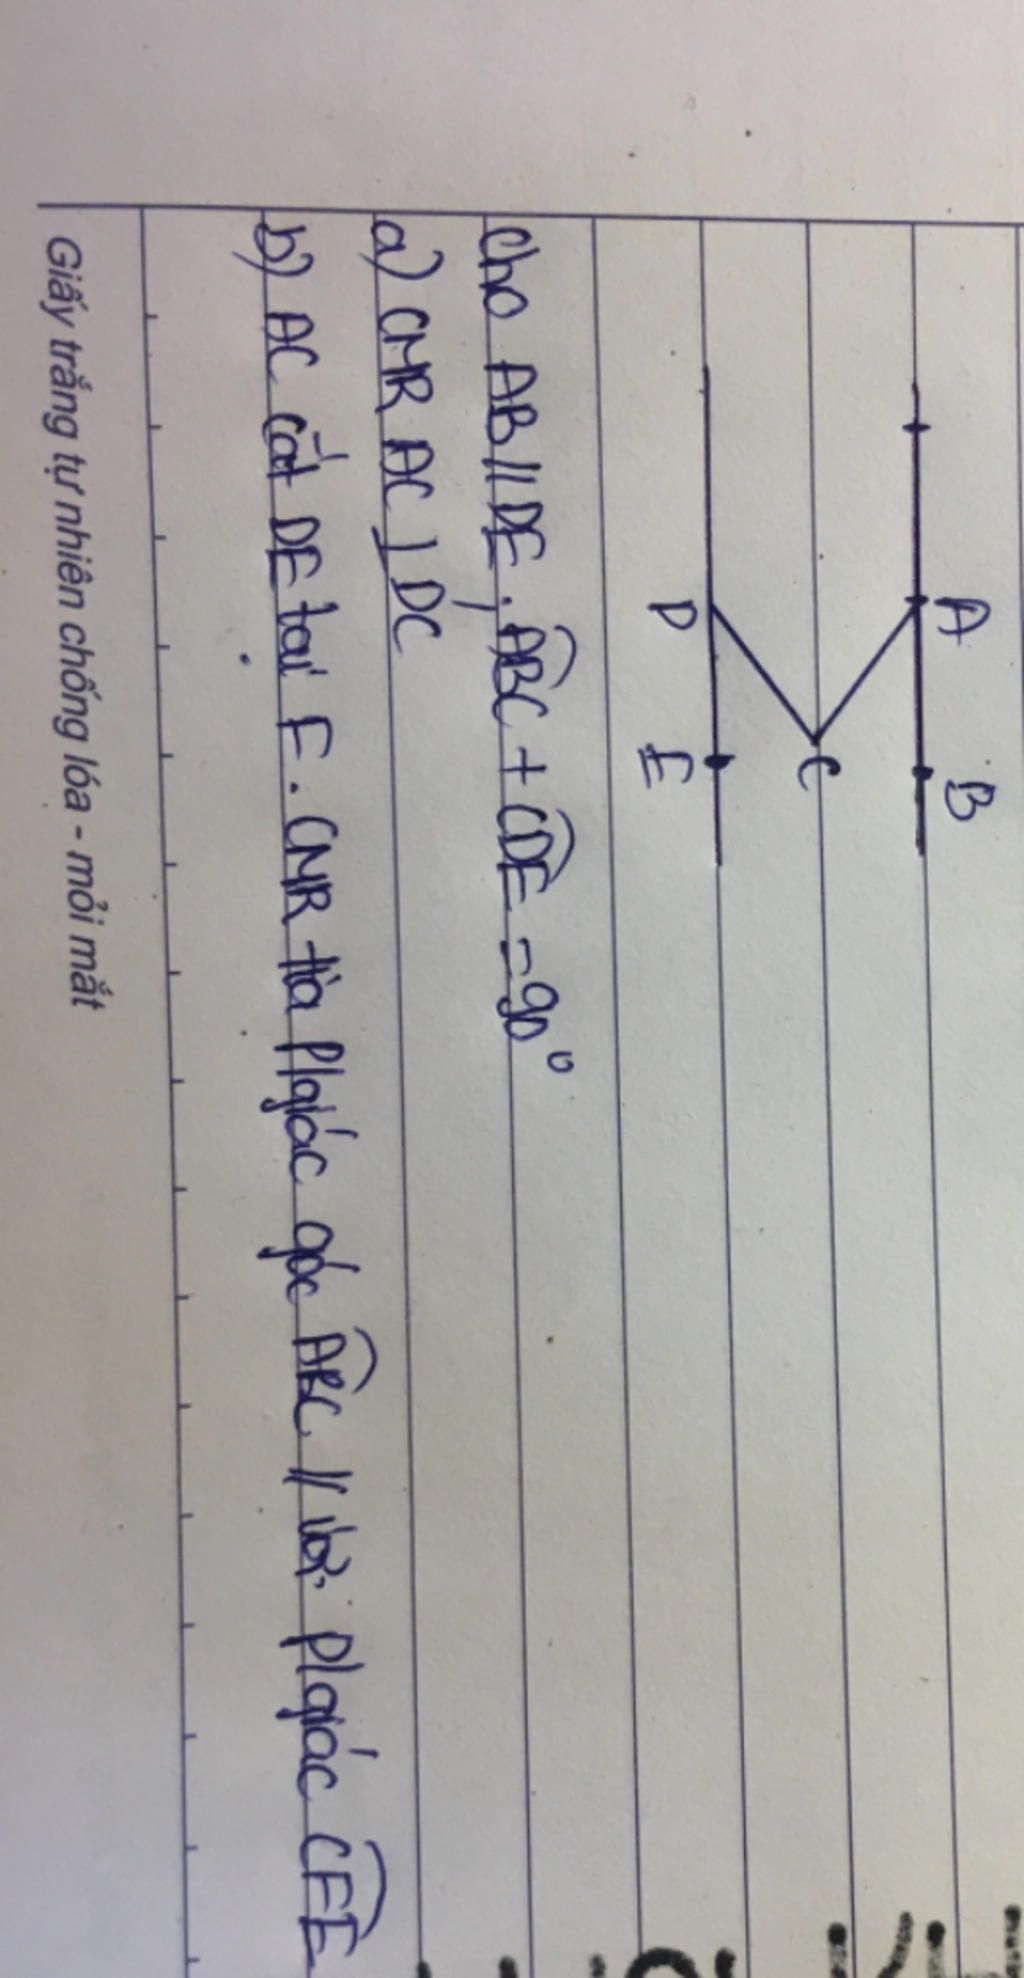 A B
C
D E
Cho AB // DE, ABC + CDE = 90°
a) CMR AC ⊥ DC
b) AC cắt DE tại F. CMR tia p/giác góc ABC // với p/giác CFE
Giấy trắng tự nhiên chống lóa - mỏi mắt